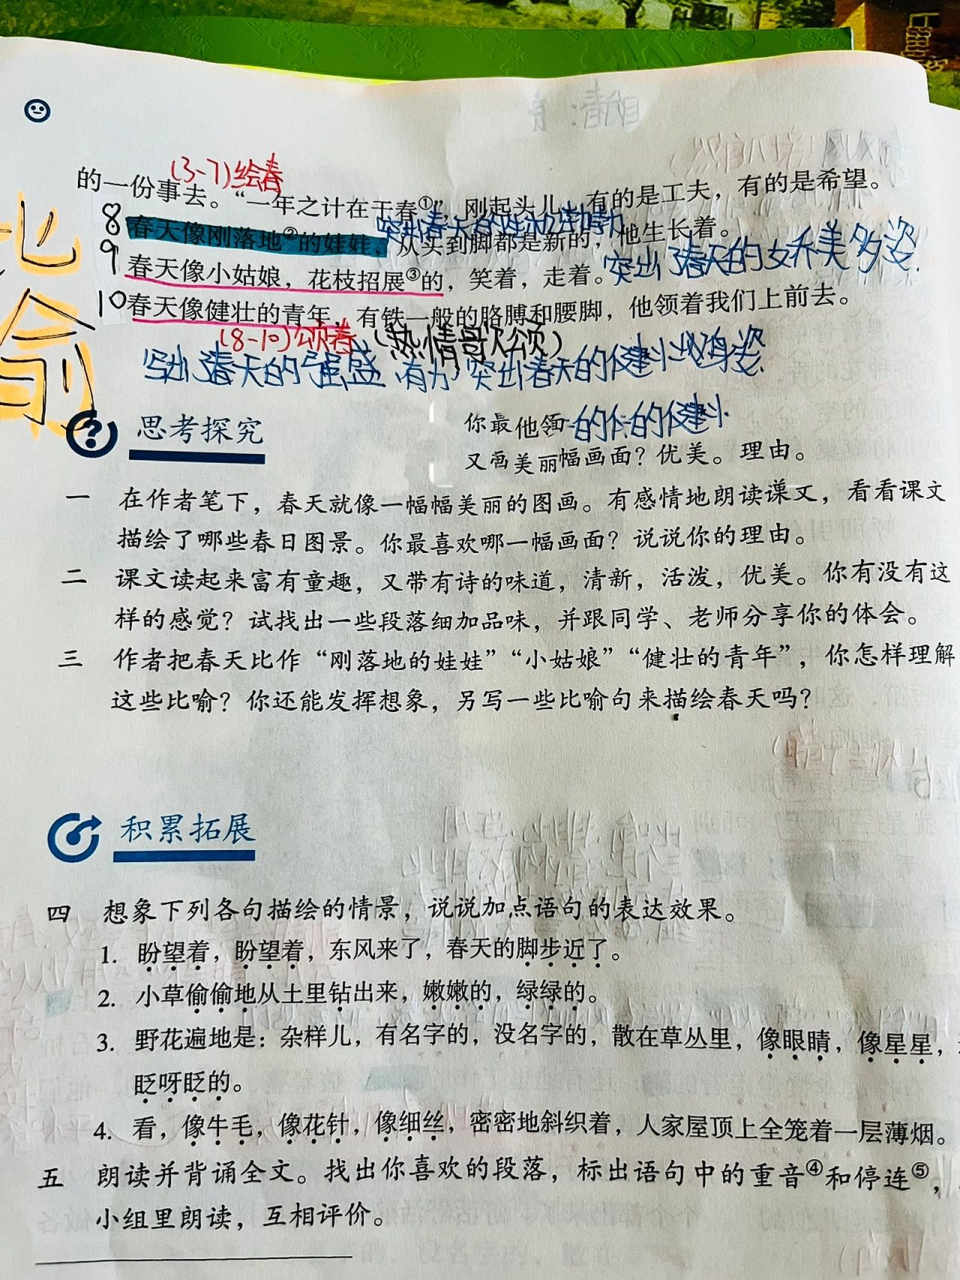 (3-7)绘春
的一份事去。“一年之计在于春①”，刚起头儿，有的是工夫，有的是希望。
8 春天像刚落地②的娃娃，从头到脚都是新的，他生长着。
突出春天的
9 春天像小姑娘，花枝招展③的，笑着，走着。
突出了春天的娇美多姿.
10 春天像健壮的青年，有铁一般的胳膊和腰脚，他领着我们上前去。
(8-10)颂春 (热情歌颂)
写出了春天的强盛 有力 突出春天的健壮身姿
比喻
思考探究
你最他领一的的健壮
又画美丽幅画面？优美。理由。
一 在作者笔下，春天就像一幅幅美丽的图画。有感情地朗读课文，看看课文
描绘了哪些春日图景。你最喜欢哪一幅画面？说说你的理由。
二 课文读起来富有童趣，又带有诗的味道，清新，活泼，优美。你有没有这
样的感觉？试找出一些段落细加品味，并跟同学、老师分享你的体会。
三 作者把春天比作“刚落地的娃娃”“小姑娘”“健壮的青年”，你怎样理解
这些比喻？你还能发挥想象，另写一些比喻句来描绘春天吗？
积累拓展
四 想象下列各句描绘的情景，说说加点语句的表达效果。
1. 盼望着，盼望着，东风来了，春天的脚步近了。
2. 小草偷偷地从土里钻出来，嫩嫩的，绿绿的。
3. 野花遍地是：杂样儿，有名字的，没名字的，散在草丛里，像眼睛，像星星，
眨呀眨的。
4. 看，像牛毛，像花针，像细丝，密密地斜织着，人家屋顶上全笼着一层薄烟。
五 朗读并背诵全文。找出你喜欢的段落，标出语句中的重音④和停连⑤，
小组里朗读，互相评价。